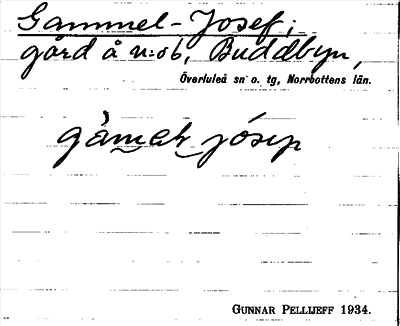 Gammel-Josef;
gård å n:o 6, Buddbyn,
Överluleå sn o. tg, Norrbottens län.
jósep
GUNNAR PELLIJEFF 1934.